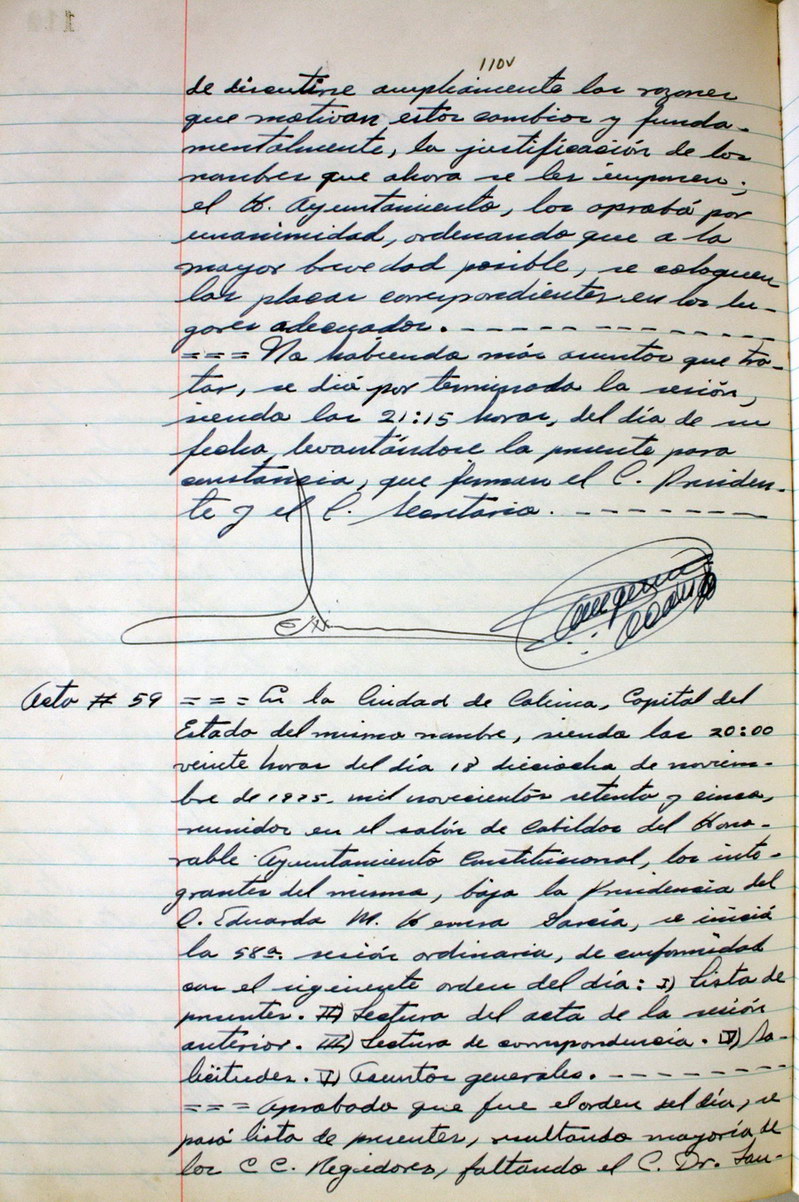 110v
de discutirse ampliamente las razones
que motivan estos cambios y funda-
mentalmente, la justificación de los
nombres que ahora se les imponen;
el H. Ayuntamiento, los aprobó por
unanimidad, ordenando que a la
mayor brevedad posible, se coloquen
las placas correspondientes en los lu-
gares adecuados. - - - - - - - - - - - -
= = = No habiendo más asuntos que tra-
tar, se dió por terminada la sesión,
siendo las 21:15 horas, del día de su
fecha, levantándose la presente para
constancia, que firman el C. Presiden-
te y el C. Secretario. - - - - - - -
Acta # 59 = = = En la Ciudad de Colima, Capital del
Estado del mismo nombre, siendo las 20:00
veinte horas del día 18 dieciocho de noviem-
bre de 1975. mil novecientos setenta y cinco,
reunidos en el salón de Cabildos del Hono-
rable Ayuntamiento Constitucional, los inte-
grantes del mismo, bajo la Presidencia del
C. Eduardo M. Herrera García, se inició
la 58a. sesión ordinaria, de conformidad
con el siguiente orden del día: I) Lista de
presentes. II) Lectura del acta de la sesión
anterior. III) Lectura de correspondencia. IV) So-
licitudes. V) Asuntos generales. - - - - - - - -
= = = Aprobado que fue el orden del día, se
pasó lista de presentes, resultando mayoría de
los C C. Regidores, faltando el C. Dr. San-